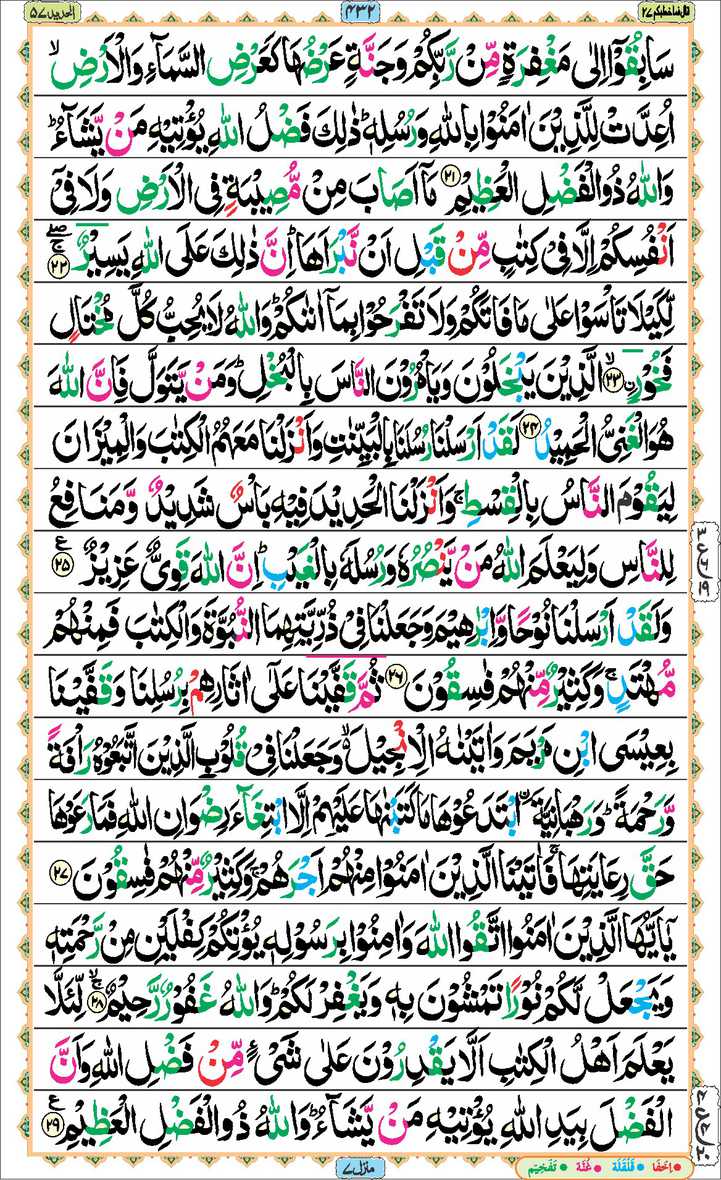 قال فما خطبکم ٢٧ ٤٣٢ الحدید ٥٧
سَابِقُوْۤا اِلٰى مَغْفِرَةٍ مِّنْ رَّبِّكُمْ وَجَنَّةٍ عَرْضُهَا كَعَرْضِ السَّمَآءِ وَالْاَرْضِۙ
اُعِدَّتْ لِلَّذِيْنَ اٰمَنُوْا بِاللّٰهِ وَرُسُلِهٖؕ ذٰلِكَ فَضْلُ اللّٰهِ يُؤْتِيْهِ مَنْ يَّشَآءُؕ
وَاللّٰهُ ذُوالْفَضْلِ الْعَظِيْمِ ٢١ مَاۤ اَصَابَ مِنْ مُّصِيْبَةٍ فِى الْاَرْضِ وَلَا فِىْۤ
اَنْفُسِكُمْ اِلَّا فِىْ كِتٰبٍ مِّنْ قَبْلِ اَنْ نَّبْرَاَهَاؕ اِنَّ ذٰلِكَ عَلَى اللّٰهِ يَسِيْرٌ ٢٢
لِّكَيْلَا تَاْسَوْا عَلٰى مَا فَاتَكُمْ وَلَا تَفْرَحُوْا بِمَاۤ اٰتٰٮكُمْؕ وَاللّٰهُ لَا يُحِبُّ كُلَّ مُخْتَالٍ
فَخُوْرِۙ ٢٣ الَّذِيْنَ يَبْخَلُوْنَ وَيَاْمُرُوْنَ النَّاسَ بِالْبُخْلِؕ وَمَنْ يَّتَوَلَّ فَاِنَّ اللّٰهَ
هُوَالْغَنِىُّ الْحَمِيْدُ ٢٤ لَقَدْ اَرْسَلْنَا رُسُلَنَا بِالْبَيِّنٰتِ وَاَنْزَلْنَا مَعَهُمُ الْكِتٰبَ وَالْمِيْزَانَ
لِيَقُوْمَ النَّاسُ بِالْقِسْطِۚ وَاَنْزَلْنَا الْحَدِيْدَ فِيْهِ بَاْسٌ شَدِيْدٌ وَّمَنَافِعُ
لِلنَّاسِ وَلِيَعْلَمَ اللّٰهُ مَنْ يَّنْصُرُهٗ وَرُسُلَهٗ بِالْغَيْبِؕ اِنَّ اللّٰهَ قَوِىٌّ عَزِيْزٌ ٢٥
وَلَقَدْ اَرْسَلْنَا نُوْحًا وَّاِبْرٰهِيْمَ وَجَعَلْنَا فِىْ ذُرِّيَّتِهِمَا النُّبُوَّةَ وَالْكِتٰبَ فَمِنْهُمْ
مُّهْتَدٍۚ وَكَثِيْرٌ مِّنْهُمْ فٰسِقُوْنَ ٢٦ ثُمَّ قَفَّيْنَا عَلٰٓى اٰثَارِهِمْ بِرُسُلِنَا وَقَفَّيْنَا
بِعِيْسَى ابْنِ مَرْيَمَ وَاٰتَيْنٰهُ الْاِنْجِيْلَۙ وَجَعَلْنَا فِىْ قُلُوْبِ الَّذِيْنَ اتَّبَعُوْهُ رَاْفَةً
وَّرَحْمَةًؕ وَرَهْبَانِيَّةَ اۨبْتَدَعُوْهَا مَا كَتَبْنٰهَا عَلَيْهِمْ اِلَّا ابْتِغَآءَ رِضْوَانِ اللّٰهِ فَمَا رَعَوْهَا
حَقَّ رِعَايَتِهَاۚ فَاٰتَيْنَا الَّذِيْنَ اٰمَنُوْا مِنْهُمْ اَجْرَهُمْۚ وَكَثِيْرٌ مِّنْهُمْ فٰسِقُوْنَ ٢٧
يٰۤاَيُّهَا الَّذِيْنَ اٰمَنُوا اتَّقُوا اللّٰهَ وَاٰمِنُوْا بِرَسُوْلِهٖ يُؤْتِكُمْ كِفْلَيْنِ مِنْ رَّحْمَتِهٖ
وَيَجْعَلْ لَّكُمْ نُوْرًا تَمْشُوْنَ بِهٖ وَيَغْفِرْ لَكُمْؕ وَاللّٰهُ غَفُوْرٌ رَّحِيْمٌۙ ٢٨ لِّئَلَّا
يَعْلَمَ اَهْلُ الْكِتٰبِ اَلَّا يَقْدِرُوْنَ عَلٰى شَىْءٍ مِّنْ فَضْلِ اللّٰهِ وَاَنَّ
الْفَضْلَ بِيَدِ اللّٰهِ يُؤْتِيْهِ مَنْ يَّشَآءُؕ وَاللّٰهُ ذُوالْفَضْلِ الْعَظِيْمِ ٢٩
منزل ٧
اِخفَا قَلْقَلَة غُنَّة تَفْخِيْم